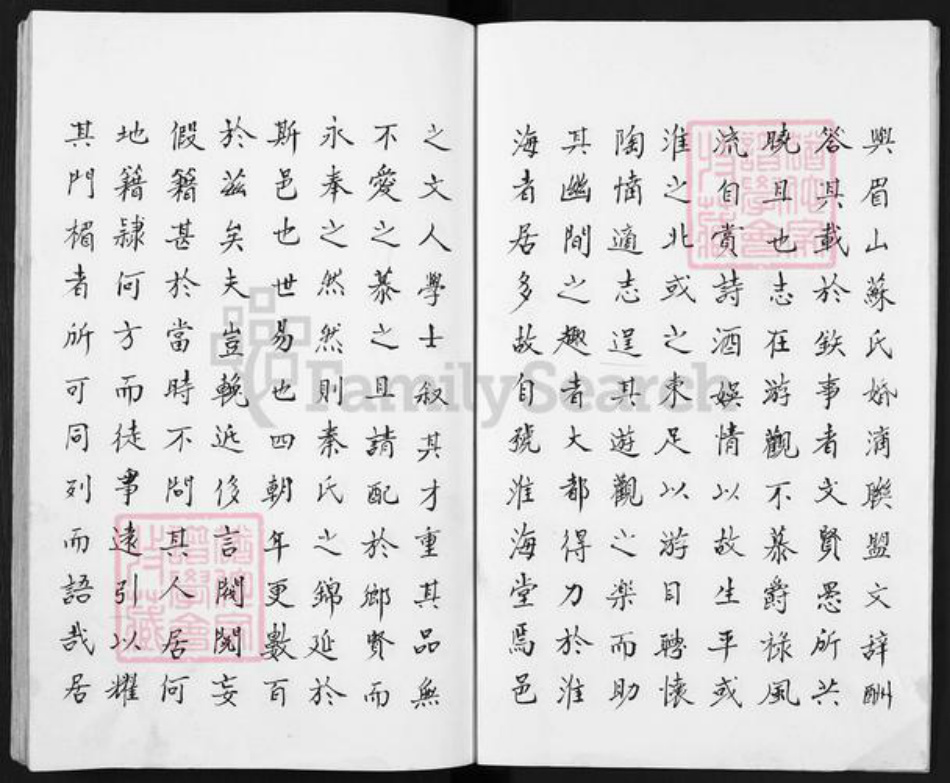 與眉山蘇氏婚溝聯盟文辞酬
答具載於鈙事者文賢愚所共
曉且也志在游觀不慕爵祿風
流自賞詩酒娛情以故生平或
淮之北或之東足以游目轉懷
陶情適志逞其遊觀之楽而助
其幽間之趣者大都得力於淮
海者居多故自號淮海堂焉邑
之文人學士叙其才重其品無
不愛之慕之且請配於鄉賢而
永奉之然然則秦氏之錦延於
斯邑也世易也四朝年更數百
於茲矣夫豈輓近侈言閥閱妄
假籍甚於當時不問其人居何
地籍隷何方而徒事遠引以耀
其門楣者所可同列而語哉居
FamilySearch